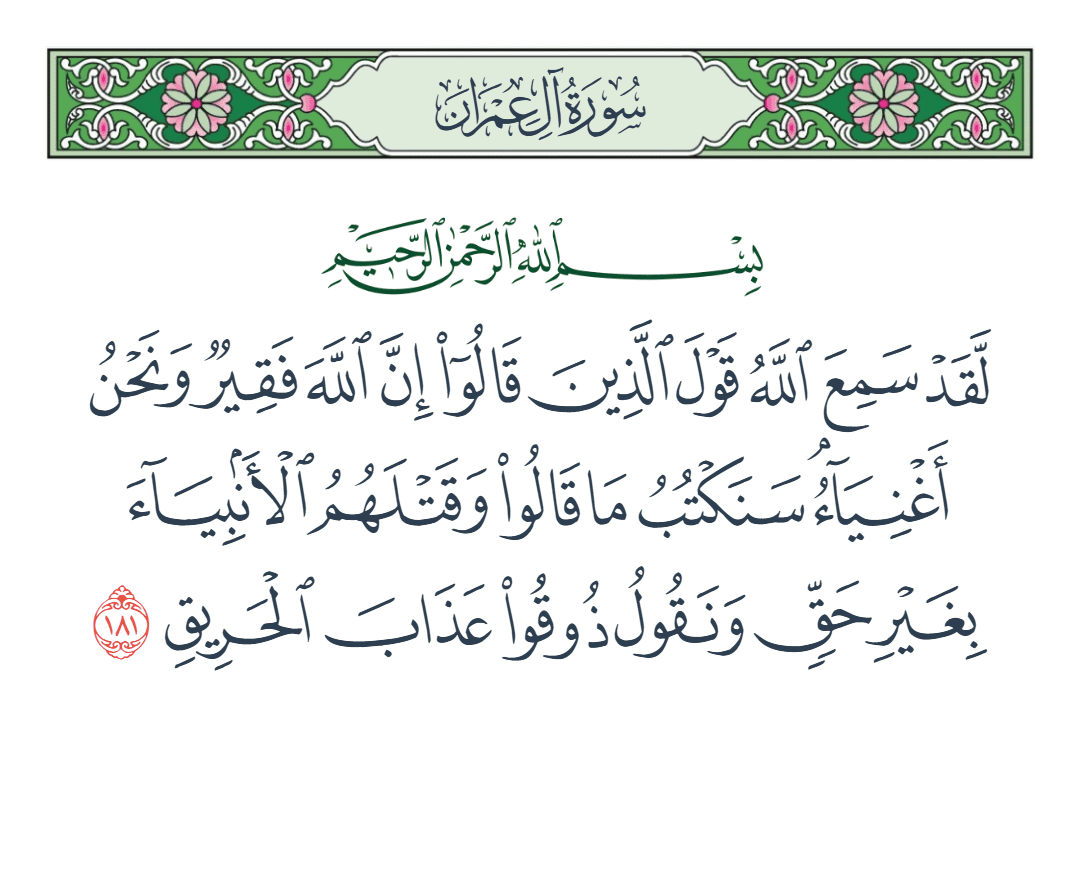 سُورَةُ آلِ عِمْرَانَ
بِسْمِ ٱللَّهِ ٱلرَّحْمَٰنِ ٱلرَّحِيمِ
لَّقَدْ سَمِعَ ٱللَّهُ قَوْلَ ٱلَّذِينَ قَالُوٓا۟ إِنَّ ٱللَّهَ فَقِيرٌ وَنَحْنُ
أَغْنِيَآءُ ۘ سَنَكْتُبُ مَا قَالُوا۟ وَقَتْلَهُمُ ٱلْأَنۢبِيَآءَ
بِغَيْرِ حَقٍّ وَنَقُولُ ذُوقُوا۟ عَذَابَ ٱلْحَرِيقِ ١٨١